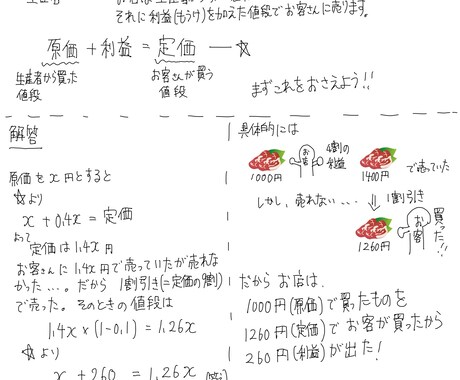 それに利益(もうけ)を加えた値段でお客さんに売ります。
原価 + 利益 = 定価 ー ☆
生産者から買った
値段
お客さんが買う
値段
まずこれをおさえよう!!
解答
原価をx円とすると
☆より
x + 0.4x = 定価
よって
定価は1.4x円
お客さんに1.4x円で売っていたが売れな
かった…。だから1割引き(=定価の9割)
で売った。そのときの値段は
1.4x × (1-0.1) = 1.26x
☆より
x + 260 = 1.26x
具体的には
お店
4割の
利益
1000円
1400円
で売っていた
しかし、売れない…
1割引き
1260円
お客
買った!!
だからお店は、
1000円(原価)で買ったものを
1260円(定価)でお客が買ったから
260円(利益)が出た!